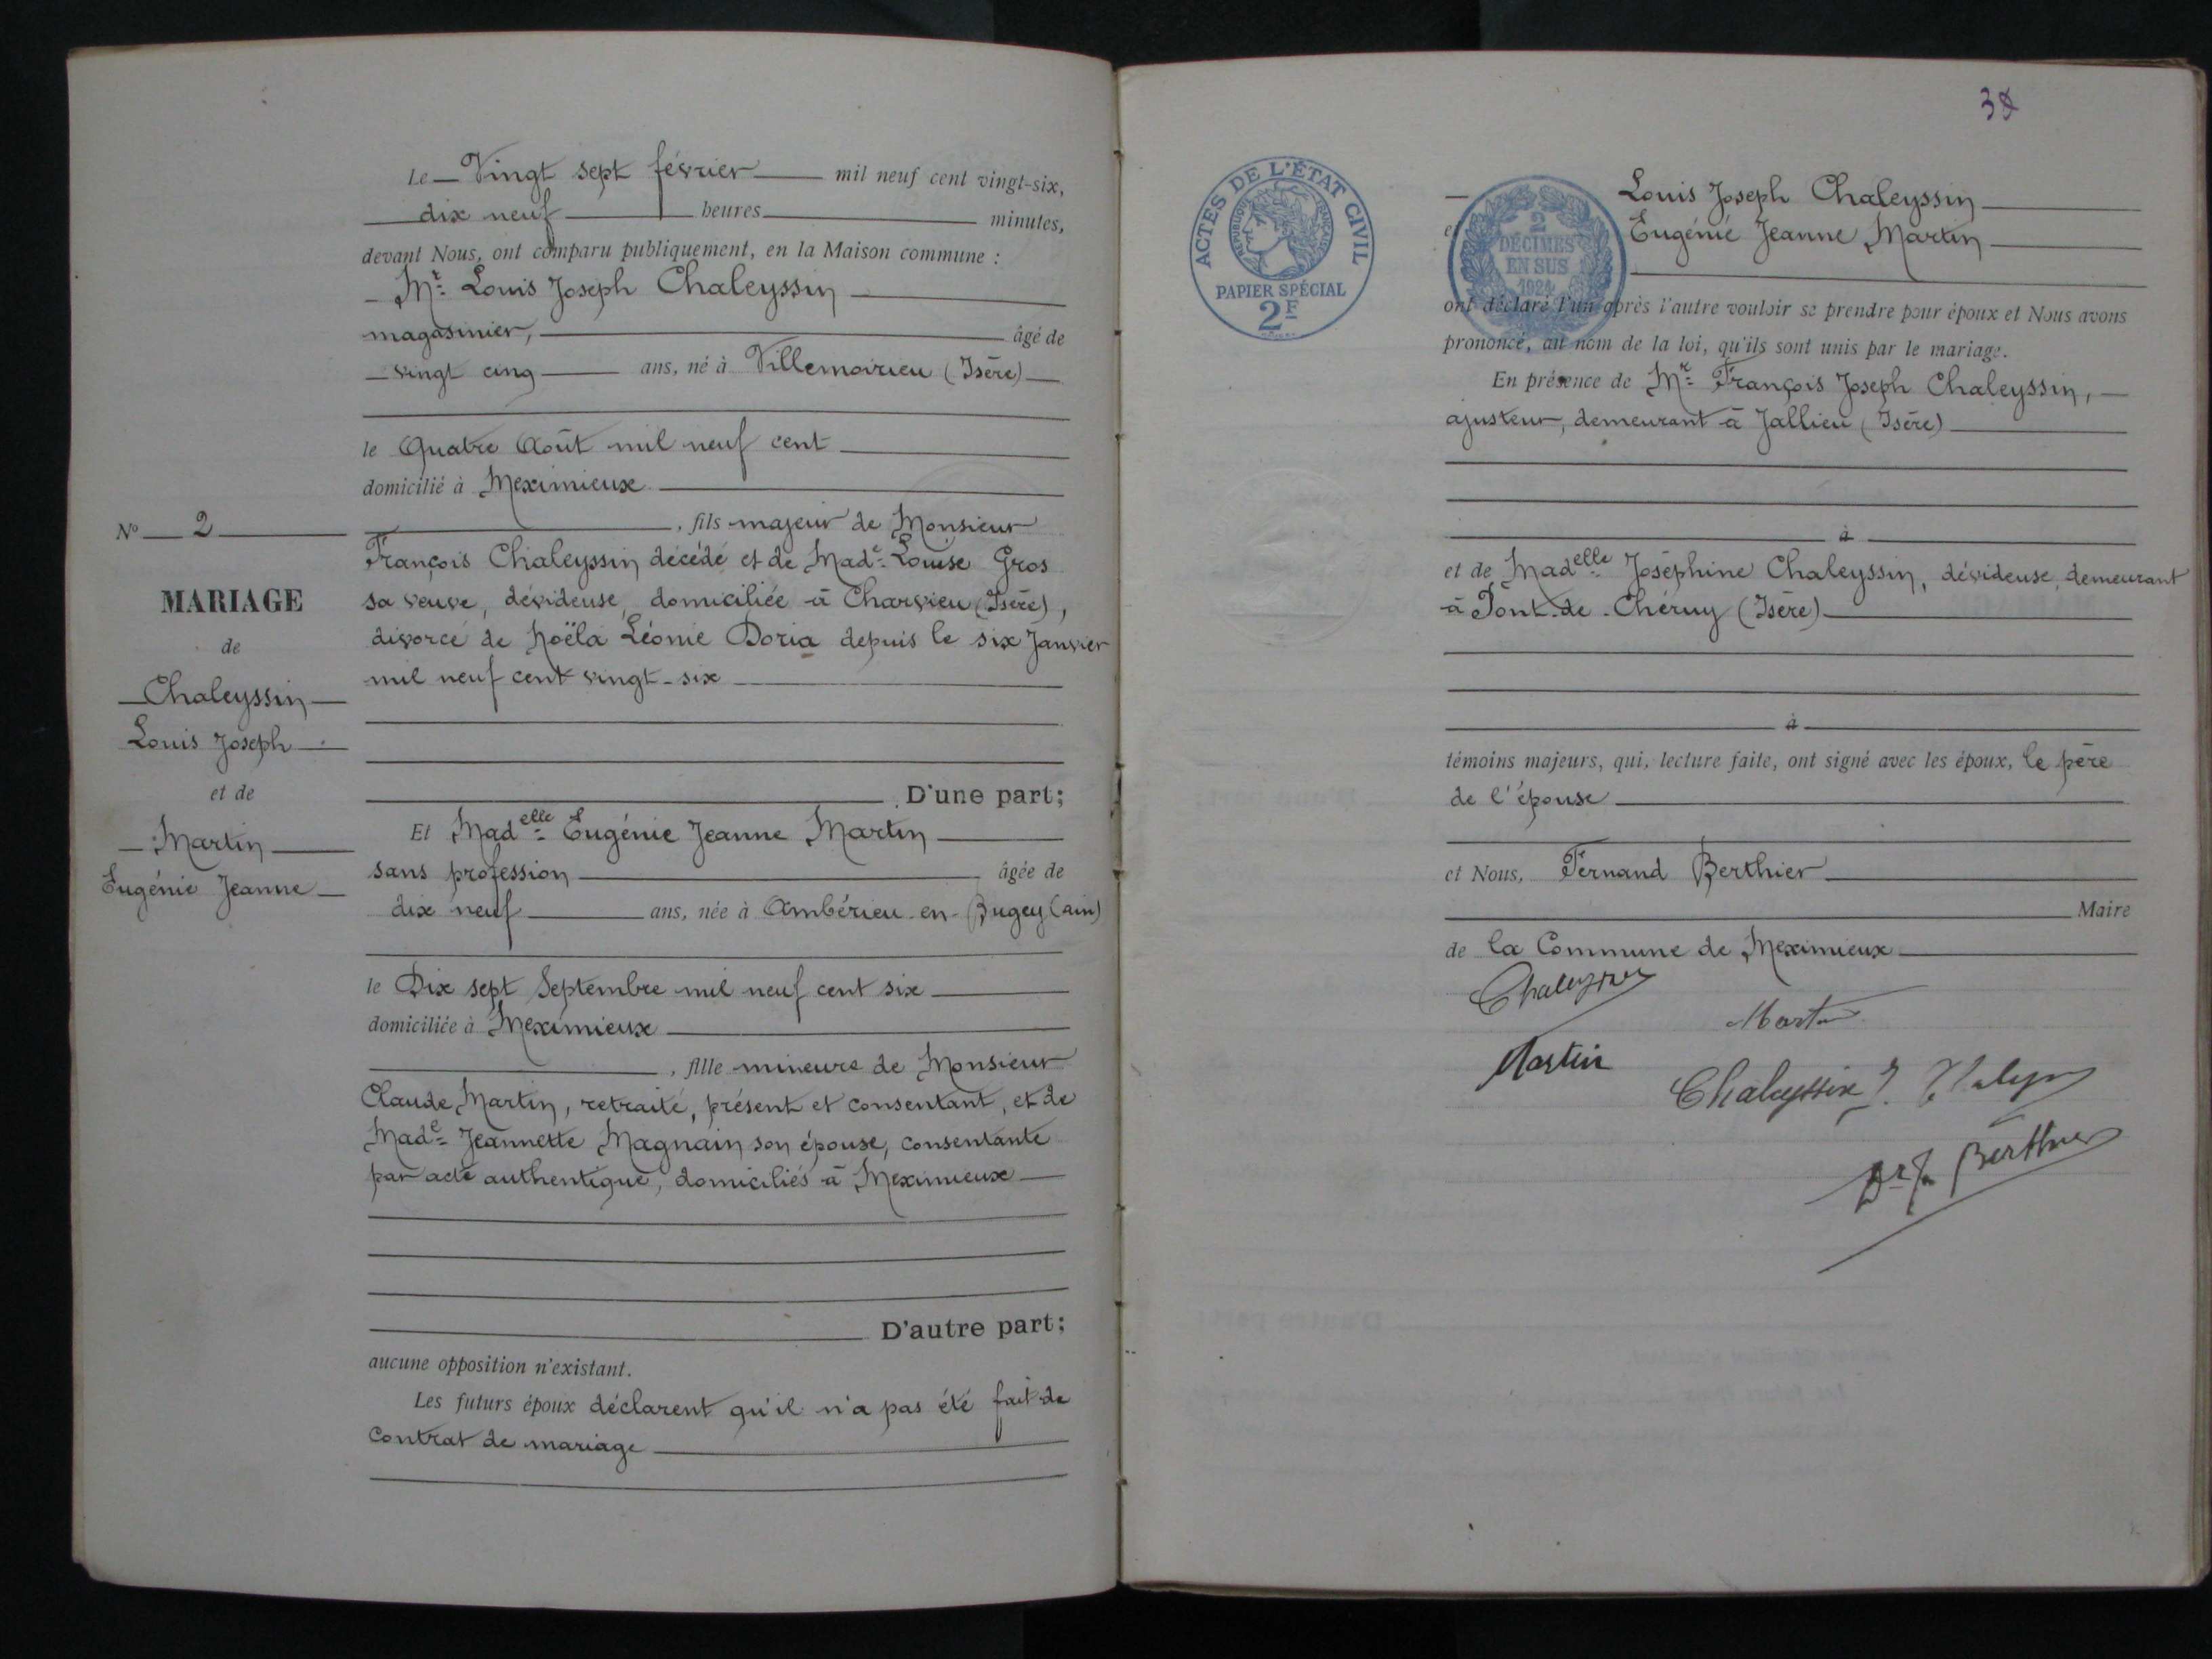 Le Vingt sept février mil neuf cent vingt-six,
dix neuf heures minutes,
devant Nous, ont comparu publiquement, en la Maison commune :
Mr Louis Joseph Chaleyssin
magasinier, âgé de
vingt cinq ans, né à Villemoirieu (Isère)
le Quatre Août mil neuf cent
domicilié à Meximieux
, fils majeur de Monsieur
François Chaleyssin décédé et de Made Louise Gros
sa veuve, dévideuse, domiciliée à Charvieu (Isère),
divorcé de Noëla Léonie Doria depuis le six Janvier
mil neuf cent vingt-six
D'une part;
Et Madelle Eugénie Jeanne Martin
sans profession âgée de
dix neuf ans, née à Ambérieu-en-Bugey (Ain)
le Dix sept Septembre mil neuf cent six
domiciliée à Meximieux
, fille mineure de Monsieur
Claude Martin, retraité, présent et consentant, et de
Made Jeannette Magnain son épouse, consentante
par acte authentique, domiciliés à Meximieux
D'autre part;
aucune opposition n'existant.
Les futurs époux déclarent qu'il n'a pas été fait de
contrat de mariage
N° 2
MARIAGE
de
Chaleyssin
Louis Joseph
et de
Martin
Eugénie Jeanne
38
ACTES DE L'ÉTAT CIVIL
RÉPUBLIQUE FRANÇAISE
PAPIER SPÉCIAL
2F
2
DÉCIMES
EN SUS
1924
Louis Joseph Chaleyssin
et Eugénie Jeanne Martin
ont déclaré l'un après l'autre vouloir se prendre pour époux et Nous avons
prononcé, au nom de la loi, qu'ils sont unis par le mariage.
En présence de Mr François Joseph Chaleyssin,
ajusteur, demeurant à Jallieu (Isère)
à
et de Madelle Joséphine Chaleyssin, dévideuse, demeurant
à Pont-de-Chéruy (Isère)
à
témoins majeurs, qui, lecture faite, ont signé avec les époux, le père
de l'épouse
et Nous, Fernand Berthier
Maire
de la Commune de Meximieux
Chaleyssin
Martin
Martin
Chaleyssin J.
Dr F. Berthier